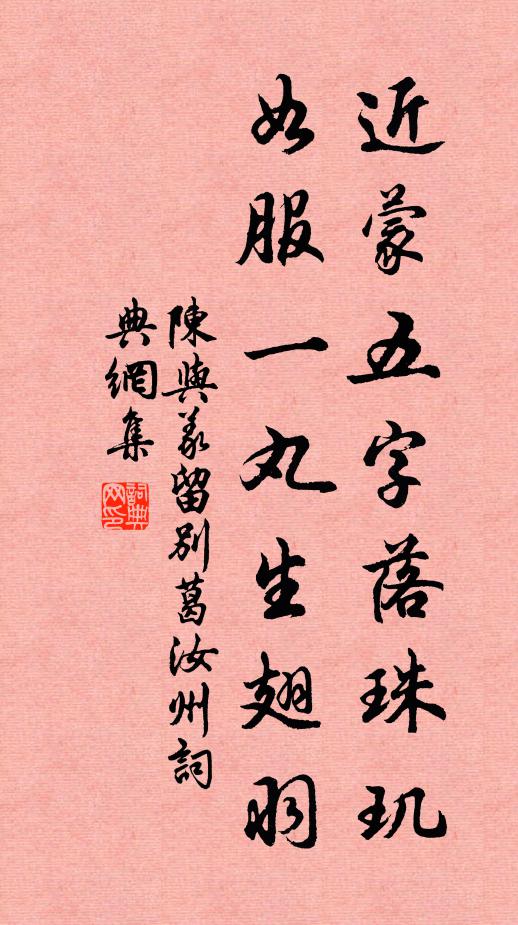 近蒙五字落珠玑
如服一丸生翅羽
陳與義留别葛汝州詞
典網集
詞典网印